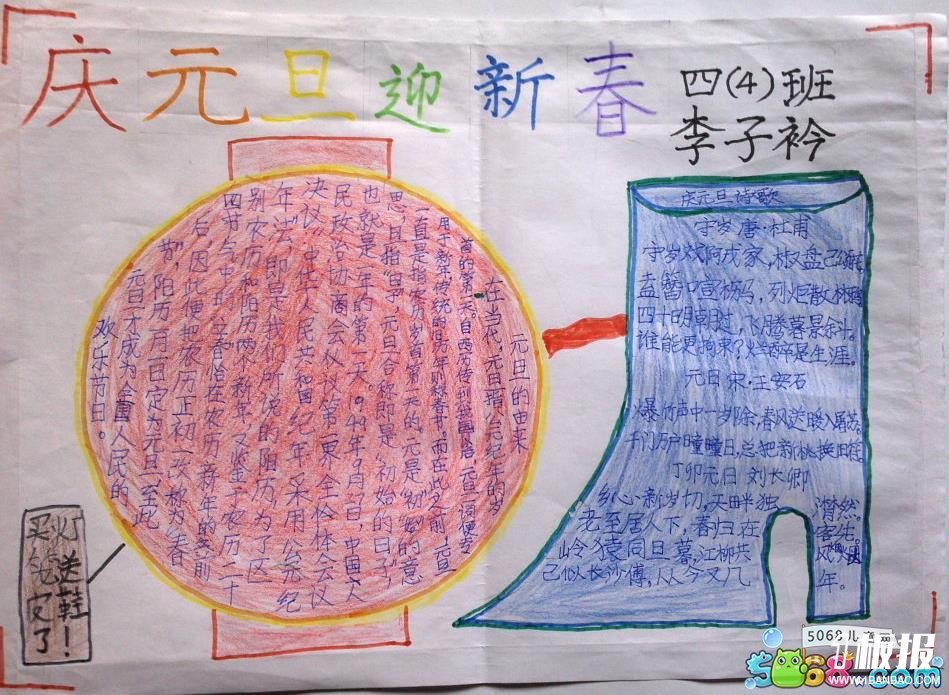 庆元旦迎新春
四(4)班
李子衿
元旦的由来
在当代,元旦指公元纪年的岁
首的第一天。自西方传到我国以后,元旦一词便专
用于新年,传统的历年则称春节,而在此之前,元旦
一直是指农历岁首第一天的。元是“初”“始”的意
思,旦指“日子”,元旦合称即是“初始的日子”,
也就是一年的第一天。1949年9月27日,中国人
民政治协商会议第一届全体会议
决议:“中华人民共和国纪年采用公元纪
年法”,即是我们所说的阳历,为了区
别农历和阳历两个新年,又鉴于农历二十
四节气中的“立春”恰在农历新年的前
后,因此便把农历正初一改称为“春
节”,阳历一月一日定为“元旦”,至此
元旦才成为全国人民的
欢乐节日。
庆元旦诗歌
守岁 唐·杜甫
守岁欢阿戎家,椒盘已
盍簪喧枥马,列炬散林鸦
四十明朝过,飞腾暮景斜。
谁能更拘束?烂醉是生涯。
元日 宋·王安石
爆竹声中一岁除,春风送暖入屠苏,
千门万户曈曈日,总把新桃换旧符
丁卯元日 刘长卿
乡心新岁切,天畔独潸然。
老至居人下,春归在客先。
岭猿同日暮,江柳共风烟
已似长沙傅,从今又几年。
买灯送鞋!
纯
了
5068儿童网
板报
WWW.1BANBAO.COM
5068.com